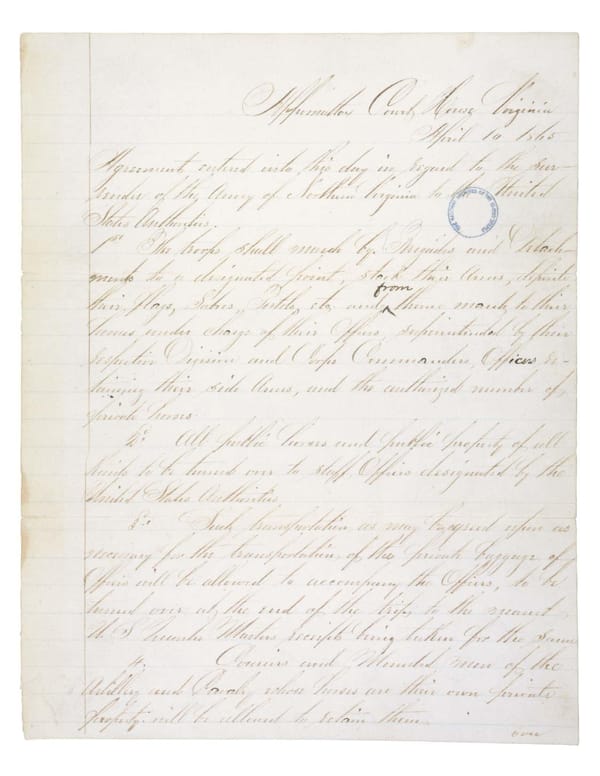 Appomattox Court House Virginia
April 10 1865
Agreement entered into this day in regard to the sur-
render of the Army of Northern Virginia to the United
States Authorities.
1st The troops shall march by Brigades and Detach-
ments to a designated point, stack their Arms, deposit
their flags, Sabres, Pistols, etc. and from thence march to their
homes under charge of their Officers, superintended by their
respective Division and Corps Commanders, Officers re-
taining their side Arms, and the authorized number of
private horses.
2d All public horses and public property of all
kinds to be turned over to staff Officers designated by the
United States Authorities.
3d Such transportation as may be agreed upon as
necessary for the transportation of the private baggage of
Officers will be allowed to accompany the Officers, to be
turned over at the end of the trip to the nearest
U. S. Quarter Masters, receipts being taken for the same.
4. Couriers and Mounted men of the
Artillery and Cavalry, whose horses are their own private
property will be allowed to retain them.
over